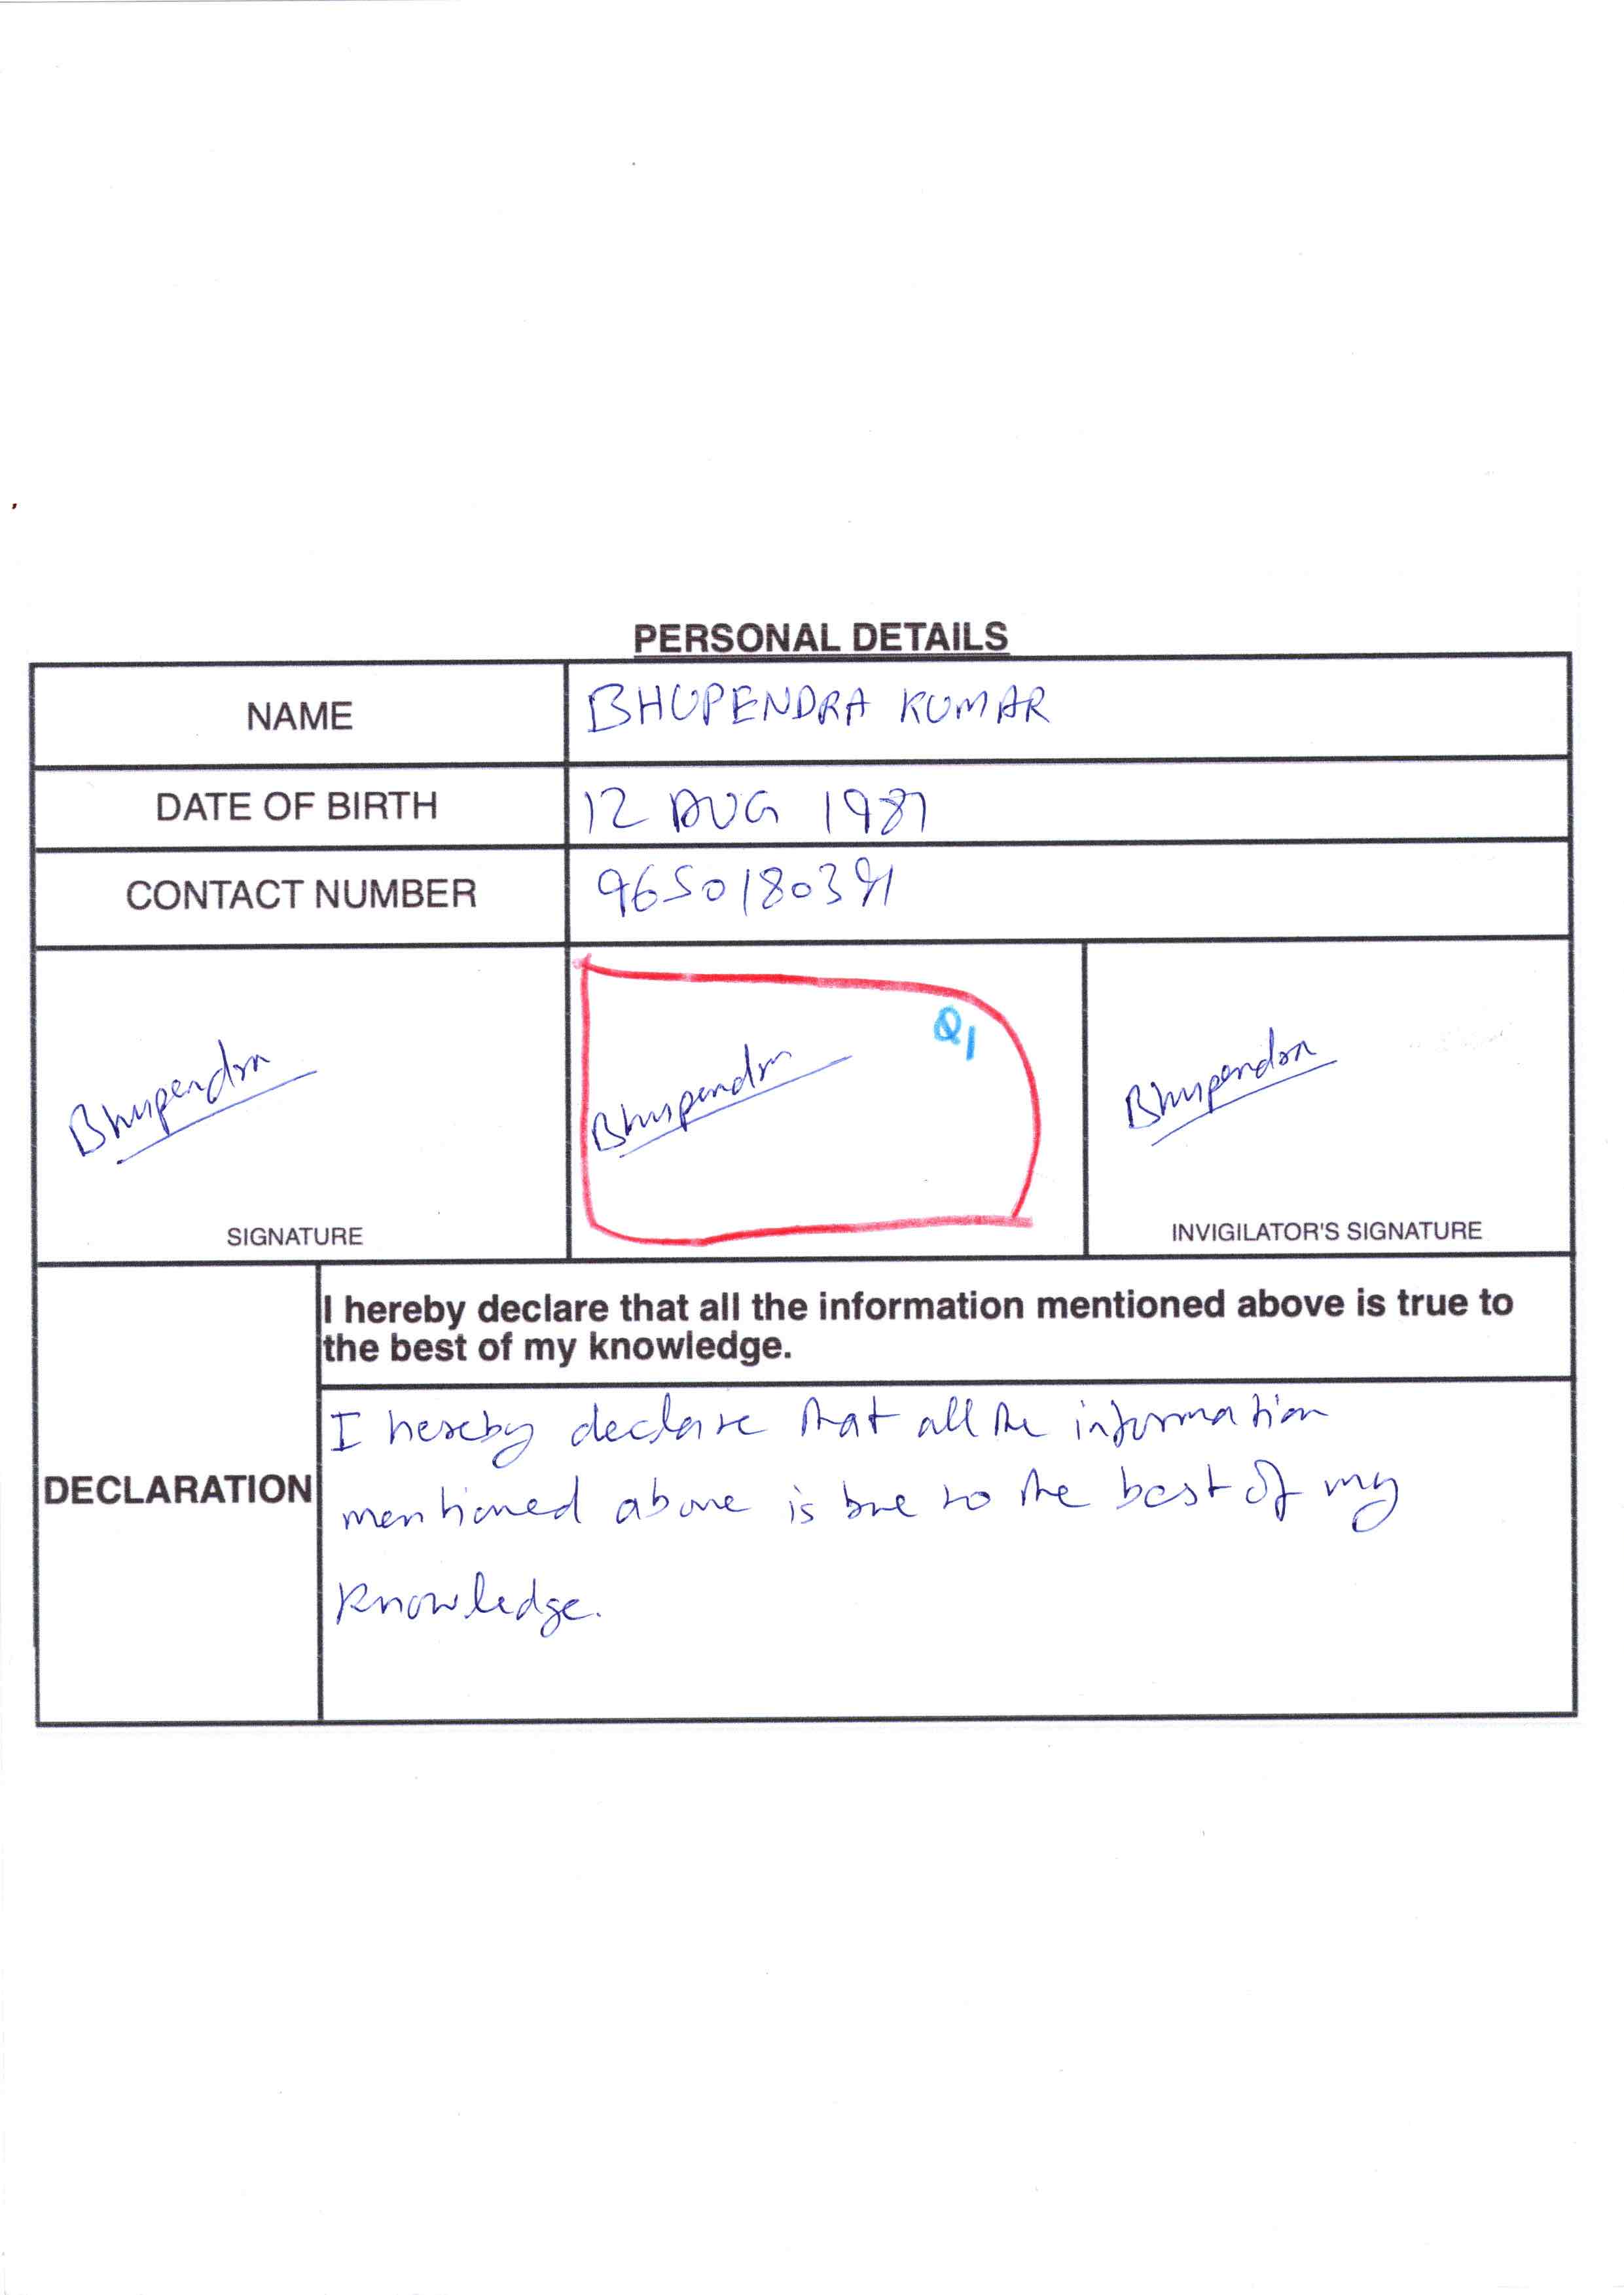 PERSONAL DETAILS
NAME
BHUPENDRA KUMAR
DATE OF BIRTH
12 AUG 1987
CONTACT NUMBER
Bhupendra
Bhupendra
Q1
Bhupendra
SIGNATURE
INVIGILATOR'S SIGNATURE
I hereby declare that all the information mentioned above is true to
the best of my knowledge.
DECLARATION
I hereby declare that all the information
mentioned above is true to the best of my
knowledge.